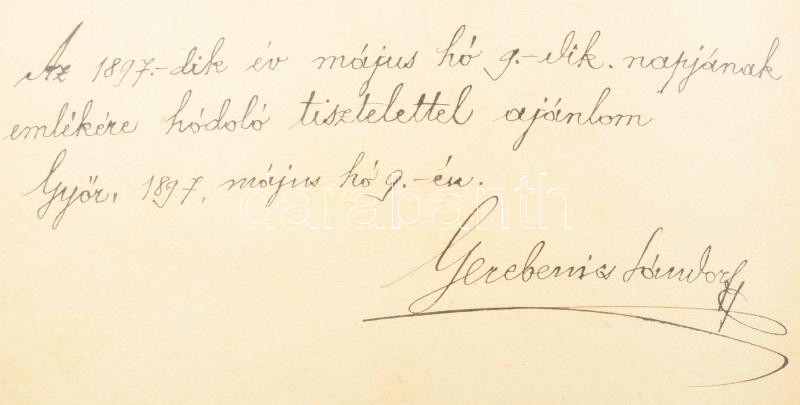 Az 1897.-dik év május hó 9.-dik. napjának
emlékére hódoló tisztelettel ajánlom
Győr, 1897, május hó 9.-én.
darabanth
Gerebenics Sándor